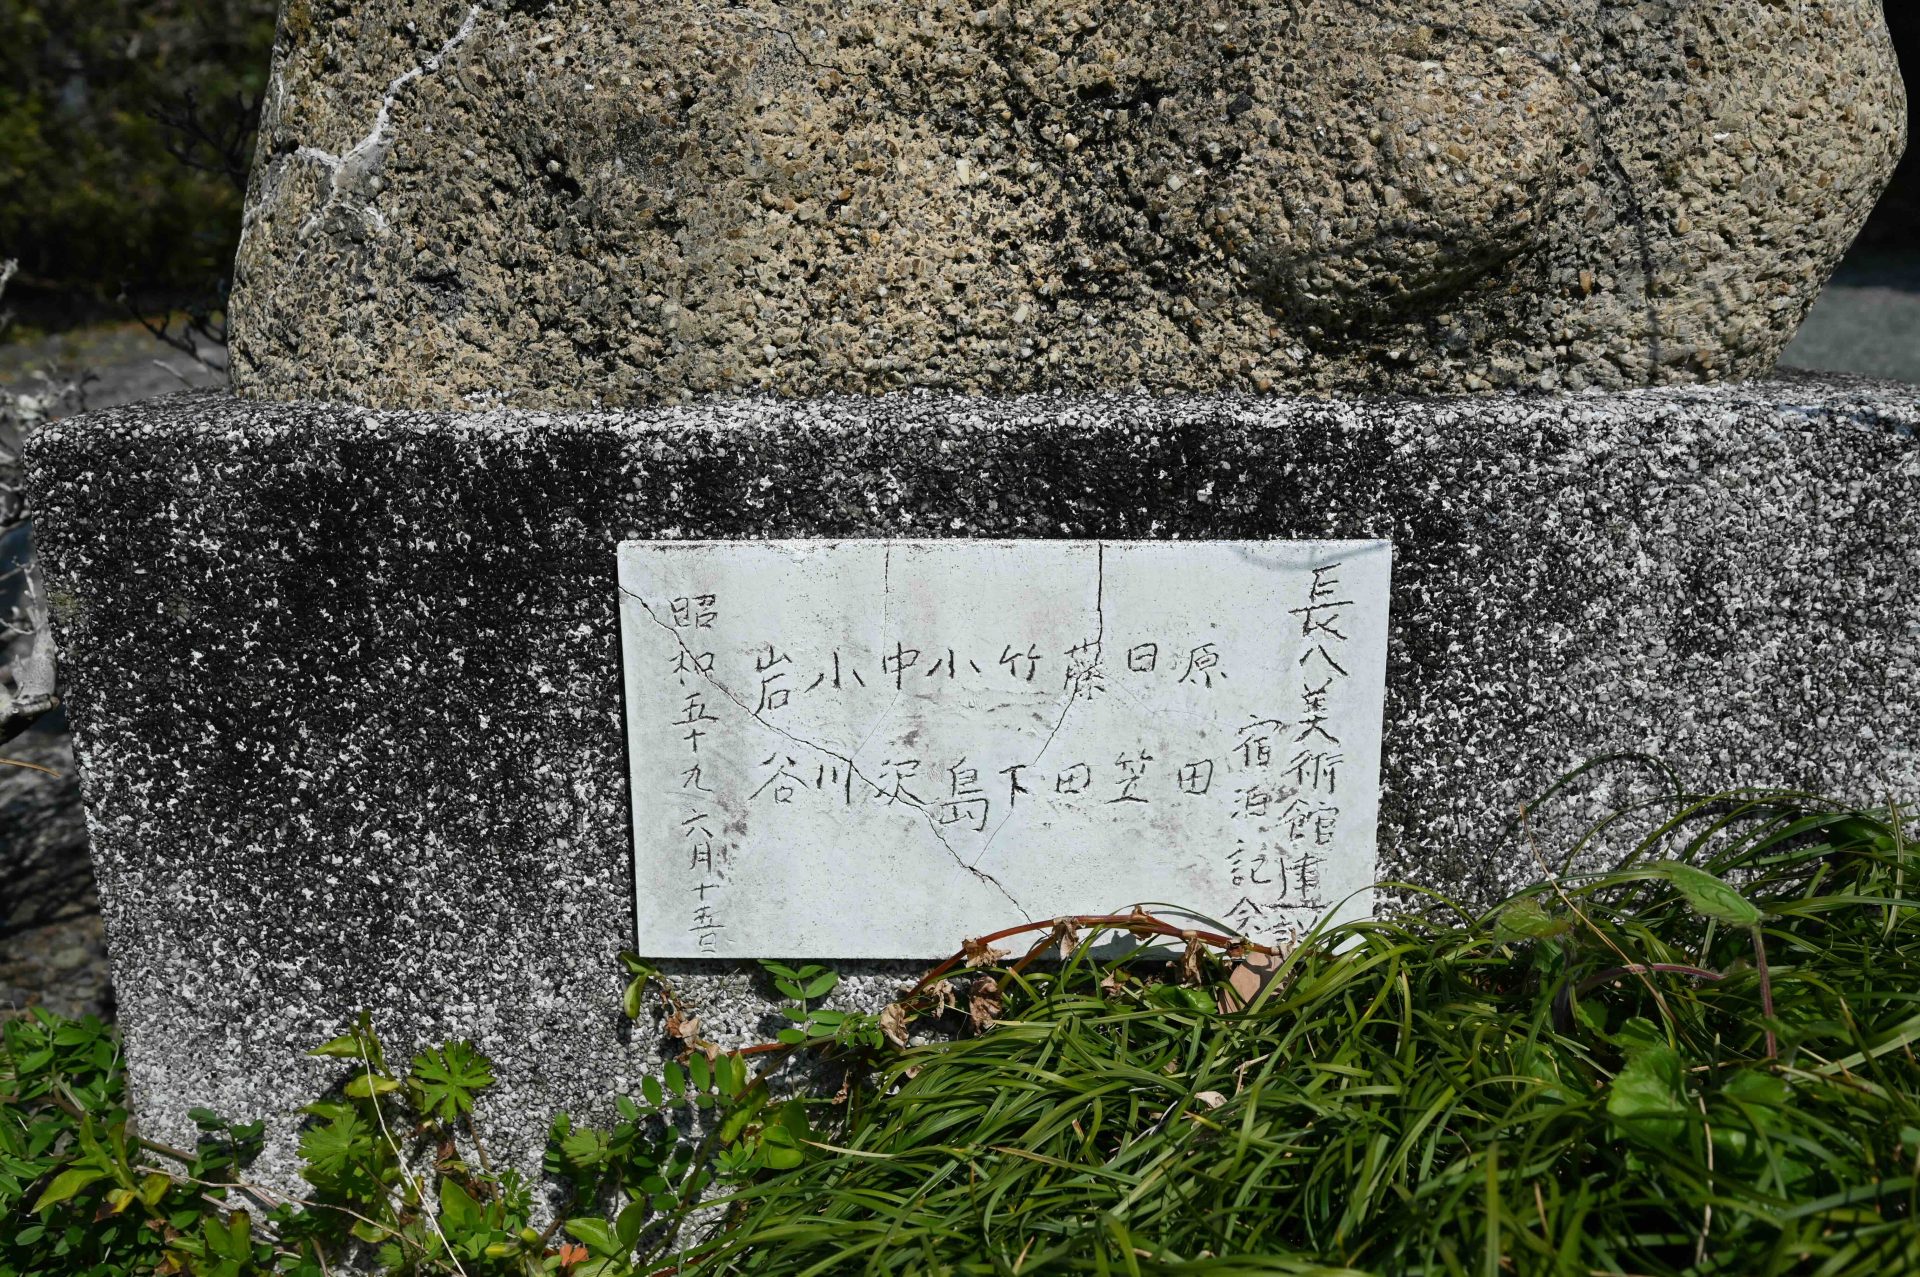 長八美術館建
宿泊記念
原田
日笠
藤田
竹下
小島
中沢
小川
岩谷
昭和五十九六月十五日